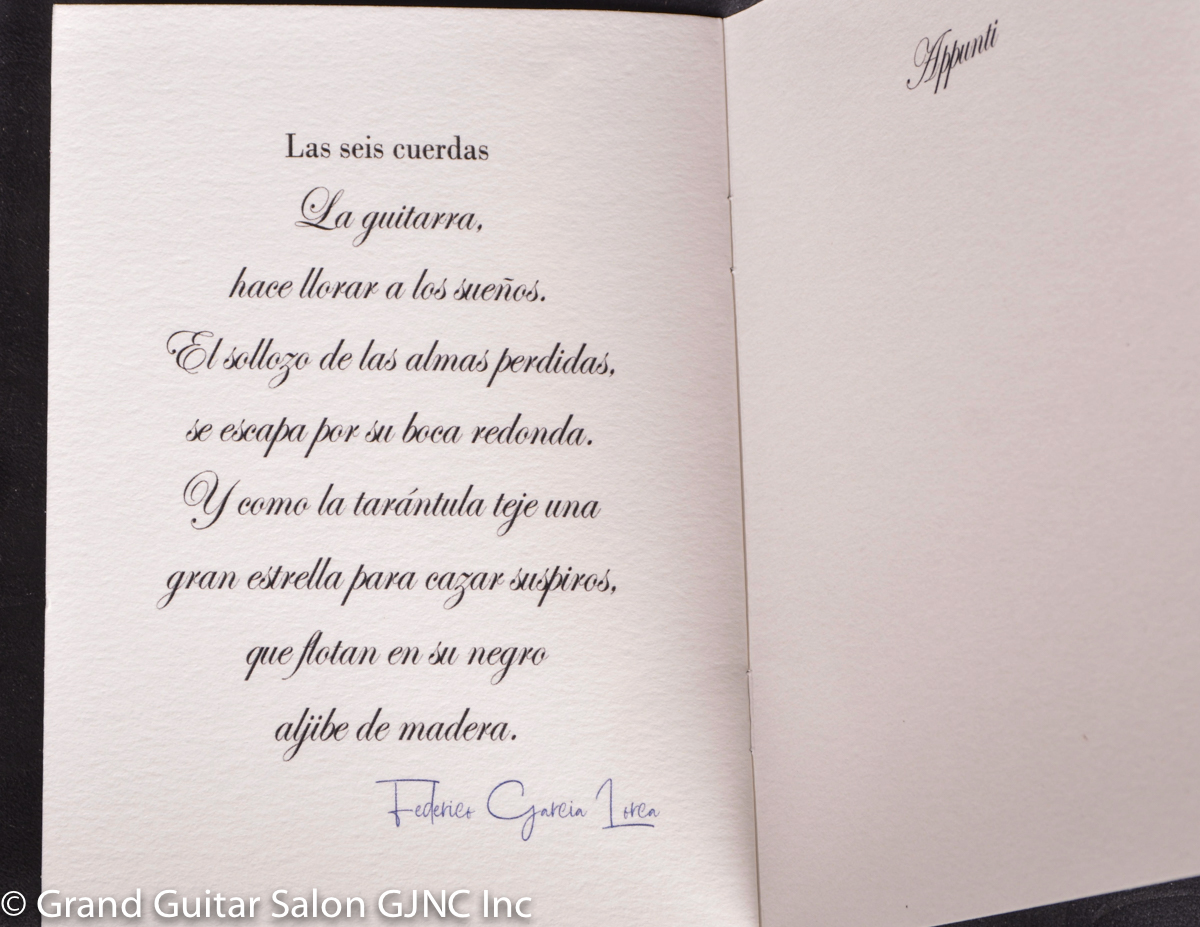 Las seis cuerdas
La guitarra,
hace llorar a los sueños.
El sollozo de las almas perdidas,
se escapa por su boca redonda.
Y como la tarántula teje una
gran estrella para cazar suspiros,
que flotan en su negro
aljibe de madera.
Federico Garcia Lorca
Appunti
© Grand Guitar Salon GJNC Inc